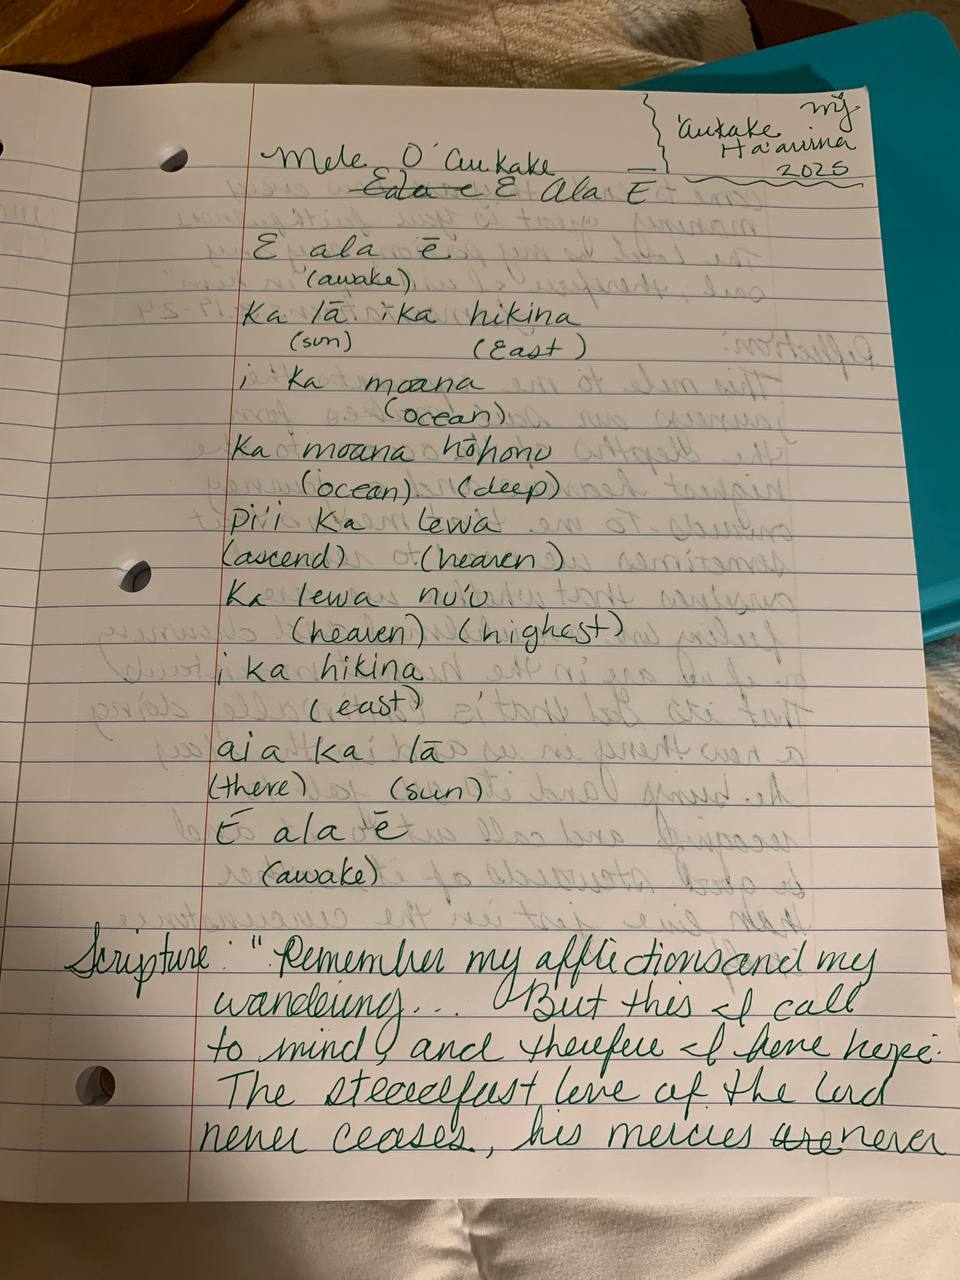 my
'Aukake
Ha'awina
2025
Mele O 'Aukake
E Ala Ē
E ala ē
(awake)
Ka lā i ka hikina
(sun) (East)
i ka moana
(ocean)
Ka moana hōhonu
(ocean) (deep)
Pi'i ka lewa
(ascend) (heaven)
Ka lewa nu'u
(heaven) (highest)
i ka hikina
(east)
aia ka lā
(there) (sun)
Ē ala ē
(awake)
Scripture: "Remember my afflictions and my
wandering... But this I call
to mind, and therefore I have hope:
The steadfast love of the Lord
never ceases, his mercies are never